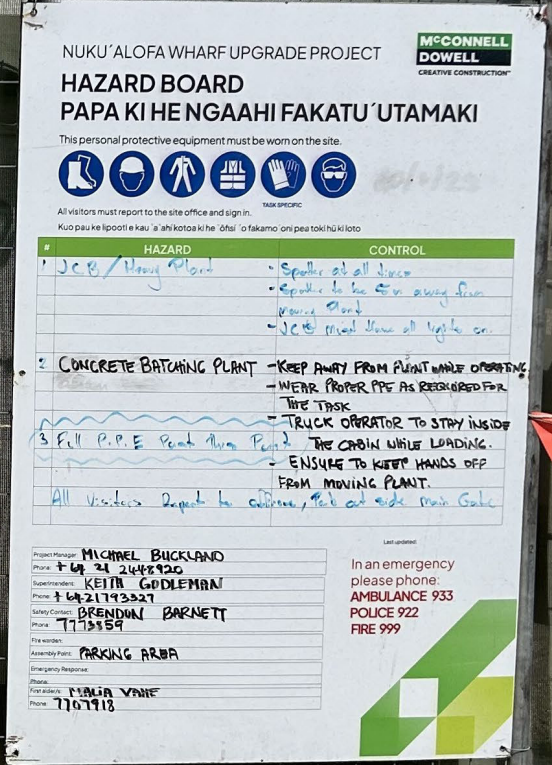 McCONNELL
DOWELL
CREATIVE CONSTRUCTION™
NUKU´ALOFA WHARF UPGRADE PROJECT
HAZARD BOARD
PAPA KI HE NGAAHI FAKATU´UTAMAKI
This personal protective equipment must be worn on the site.
TASK SPECIFIC
All visitors must report to the site office and sign in.
Kuo pau ke lipooti e kau ´a´ahi kotoa ki he ´ōfisi ´o fakamo´oni pea toki hū ki loto
# HAZARD CONTROL
1 JCB / Heavy Plant - Spotter at all times
- Spotter to be 5m away from
moving Plant
- JCB must have all lights on.
2 CONCRETE BATCHING PLANT - KEEP AWAY FROM PLANT WHILE OPERATING.
- WEAR PROPER PPE AS REQUIRED FOR
THE TASK
- TRUCK OPERATOR TO STAY INSIDE
3 Full P.P.E Past This Point THE CABIN WHILE LOADING.
- ENSURE TO KEEP HANDS OFF
FROM MOVING PLANT.
All Visitors Report to out side Main Gate
Last updated:
Project Manager: MICHAEL BUCKLAND
Phone: +64 21 2448920
Superintendent: KEITH GODLEMAN
Phone: +6421793327
Safety Contact: BRENDON BARNETT
Phone: 7773859
Fire warden:
Assembly Point: PARKING AREA
Emergency Response:
Phone:
First aider/s: MALIA
Phone: 7707918
In an emergency
please phone:
AMBULANCE 933
POLICE 922
FIRE 999